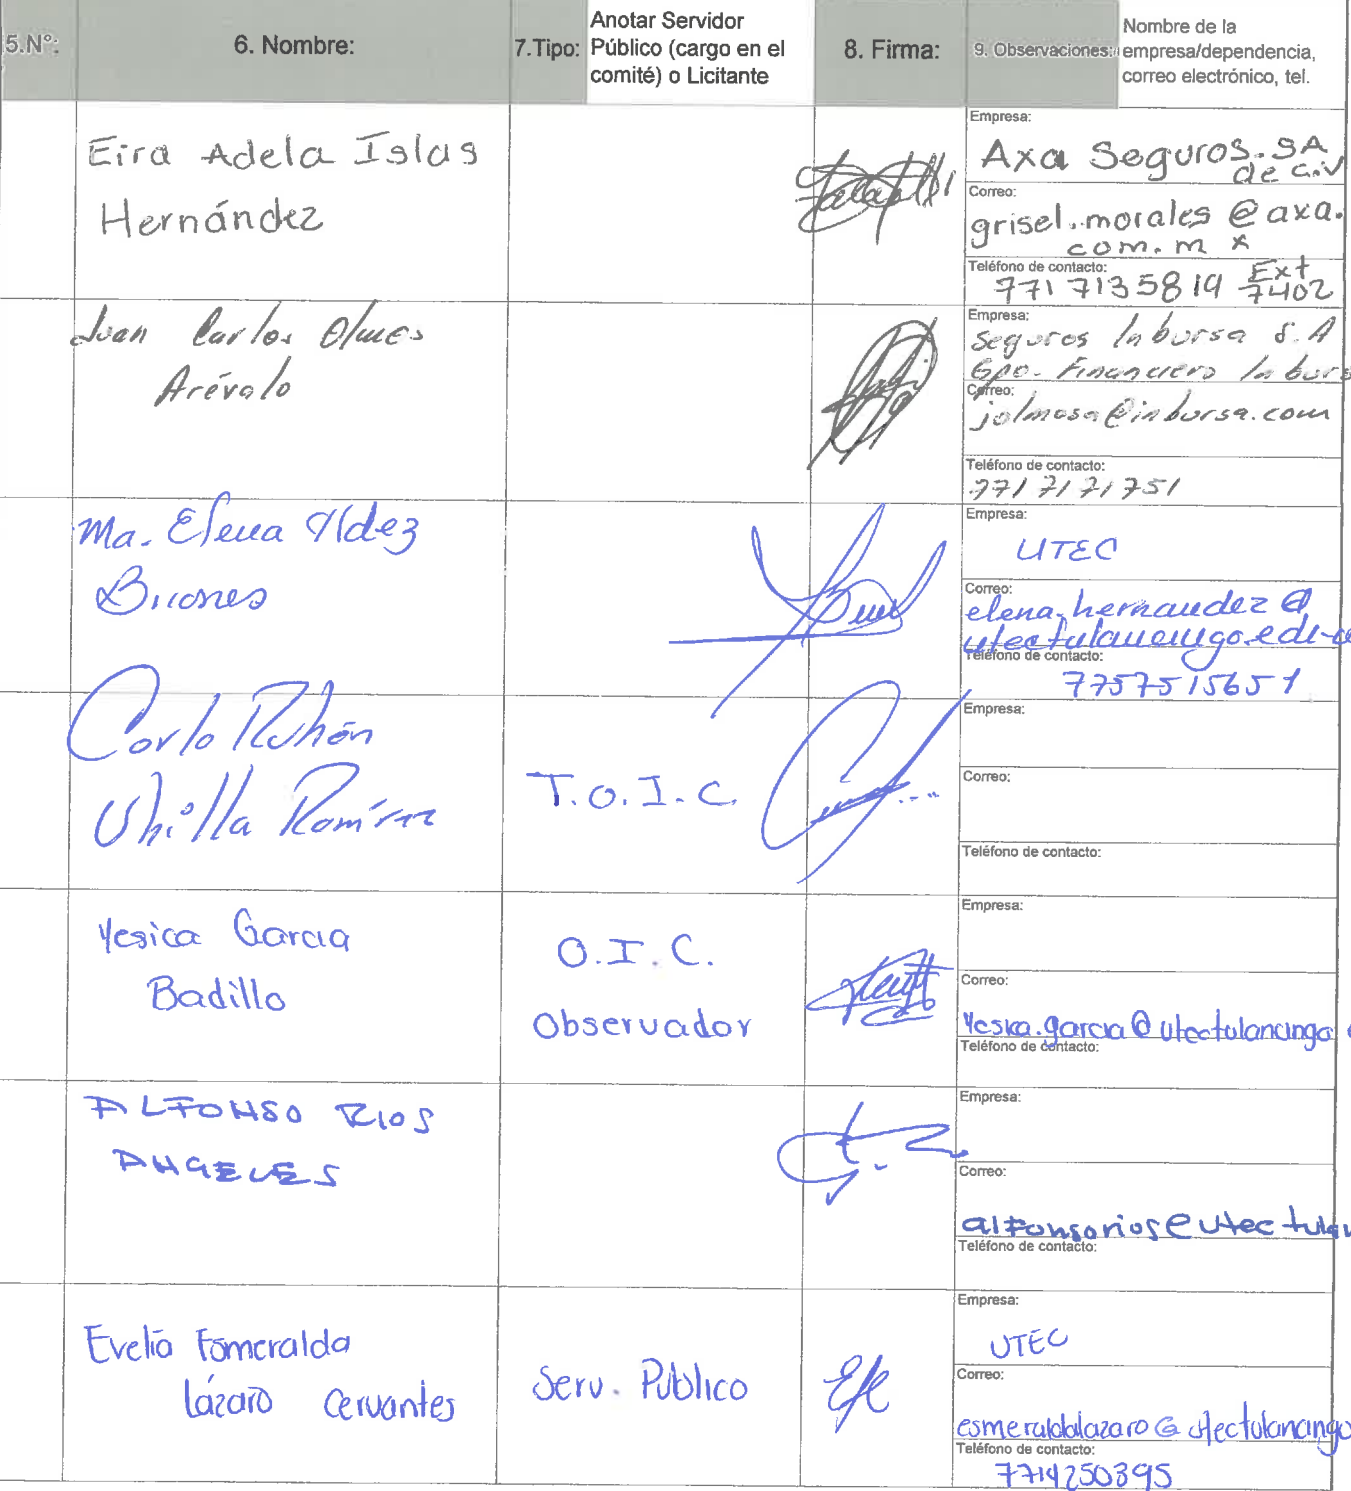 5.N°:
6. Nombre:
7.Tipo:
Anotar Servidor
Público (cargo en el
comité) o Licitante
8. Firma:
9. Observaciones:
Nombre de la
empresa/dependencia,
correo electrónico, tel.
Eira Adela Islas
Hernández
Empresa:
Axa Seguros. SA
de C.V
Correo:
grisel.morales @ axa.
com.mx
Teléfono de contacto:
771 7135819 Ext
7402
Juan Carlos Olmos
Arévalo
Empresa:
Seguros Inbursa S.A
Gpo. Financiero Inburs
Correo:
jolmosa@inbursa.com
Teléfono de contacto:
771 7171751
Ma. Elena Hdez
Briones
Empresa:
UTEC
Correo:
elena.hernandez@
utectulancingo.edu
Teléfono de contacto:
7757515651
Carlo Rubén
Ubilla Ramírez
T.O.I.C.
Empresa:
Correo:
Teléfono de contacto:
Yesica Garcia
Badillo
O.I.C.
Observador
Empresa:
Correo:
Yesica.garcia@utectulancingo
Teléfono de contacto:
ALFONSO RIOS
ANGELES
Empresa:
Correo:
alfonsorios@utectula
Teléfono de contacto:
Evelia Esmeralda
Lázaro Cervantes
Serv. Público
Empresa:
UTEC
Correo:
esmeraldalazaro@utectulancingo
Teléfono de contacto:
7714250395